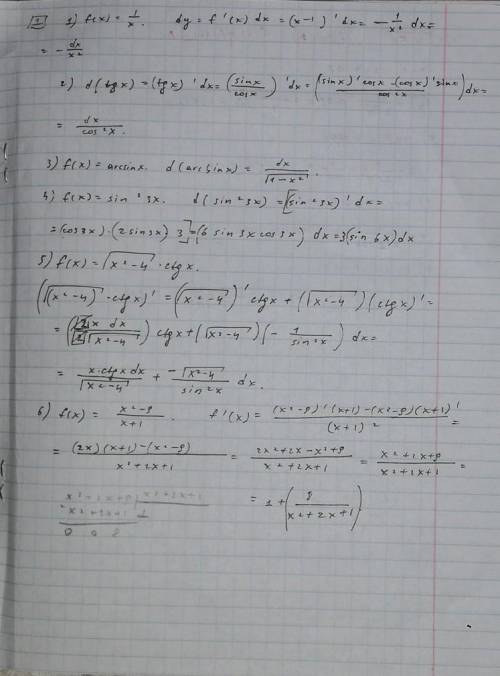 1 1) f(x) = 1/x. dy = f'(x) dx = (x-1)' dx = - 1/x² dx =
= - dx/x²
2) d(tgx) = (tgx)' dx = (sinx/cosx)' dx = ((sinx)' cosx - (cosx)' sinx / cos²x) dx =
= dx/cos²x.
3) f(x) = arcsinx. d(arcsinx) = dx/√(1-x²).
4) f(x) = sin²3x. d(sin²3x) = [(sin²3x)' dx =
= (cos3x)·(2sin3x) 3] = (6 sin3x cos3x) dx = 3(sin 6x) dx
5) f(x) = √(x²-4) · ctgx.
(√(x²-4) · ctgx)' = (√(x²-4))' ctgx + (√(x²-4))(ctgx)' =
= (2x dx / 2√(x²-4)) ctgx + (√(x²-4))(- 1/sin²x) dx =
= x·ctgx dx/√(x²-4) + -√(x²-4)/sin²x dx.
6) f(x) = x²-9/x+1. f'(x) = (x²-9)'(x+1)-(x²-9)(x+1)'/(x+1)² =
= (2x)(x+1)-(x²-9)/x²+2x+1 = 2x²+2x-x²+9/x²+2x+1 = x²+2x+9/x²+2x+1 =
= 1 + (8/x²+2x+1)
x²+2x+9 x²+2x+1
x²+2x+1 1
0 0 8